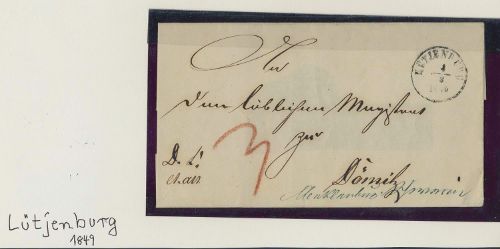 An
Dem löblichen Magistrat
zur
Dömitz
D. S.
Mecklenburg Schwerin
LÜTJENBURG
Lütjenburg
1849